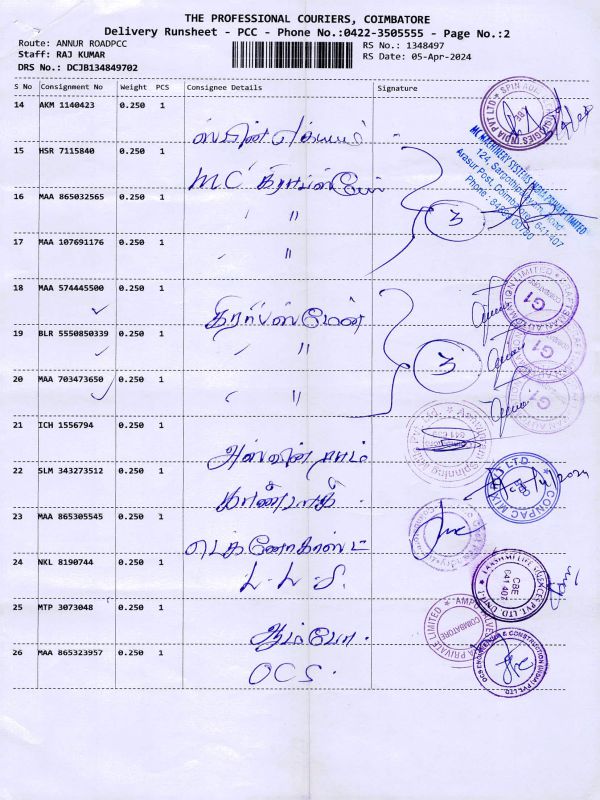 THE PROFESSIONAL COURIERS, COIMBATORE
Delivery Runsheet - PCC - Phone No.:0422-3505555 - Page No.:2
Route: ANNUR ROADPCC
RS No.: 1348497
Staff: RAJ KUMAR
RS Date: 05-Apr-2024
DRS No.: DCJB134849702
S No Consignment No Weight PCS Consignee Details Signature
14 AKM 1140423 0.250 1
15 HSR 7115840 0.250 1
MC
16 MAA 865032565 0.250 1
〃
3
17 MAA 107691176 0.250 1
〃
MC MACHINERY SYSTEMS INDIA PRIVATE LIMITED
Arasur Post, Coimbatore - 641 407
18 MAA 574445500 0.250 1
19 BLR 5550850339 0.250 1
〃
3
20 MAA 703473650 0.250 1
〃
G1
G1
G1
21 ICH 1556794 0.250 1
அஸ்வின் ராம்
22 SLM 343273512 0.250 1
CONPAC MIX
23 MAA 865305545 0.250 1
டெக்னோகாஸ்ட்
24 NKL 8190744 0.250 1
L.L.S.
CBE
641 407
25 MTP 3073048 0.250 1
ஆம்போ.
PRIVATE LIMITED
COIMBATORE
26 MAA 865323957 0.250 1
OCS.
OCS ENGINEERING & CONSTRUCTION (INDIA) PVT. LTD.